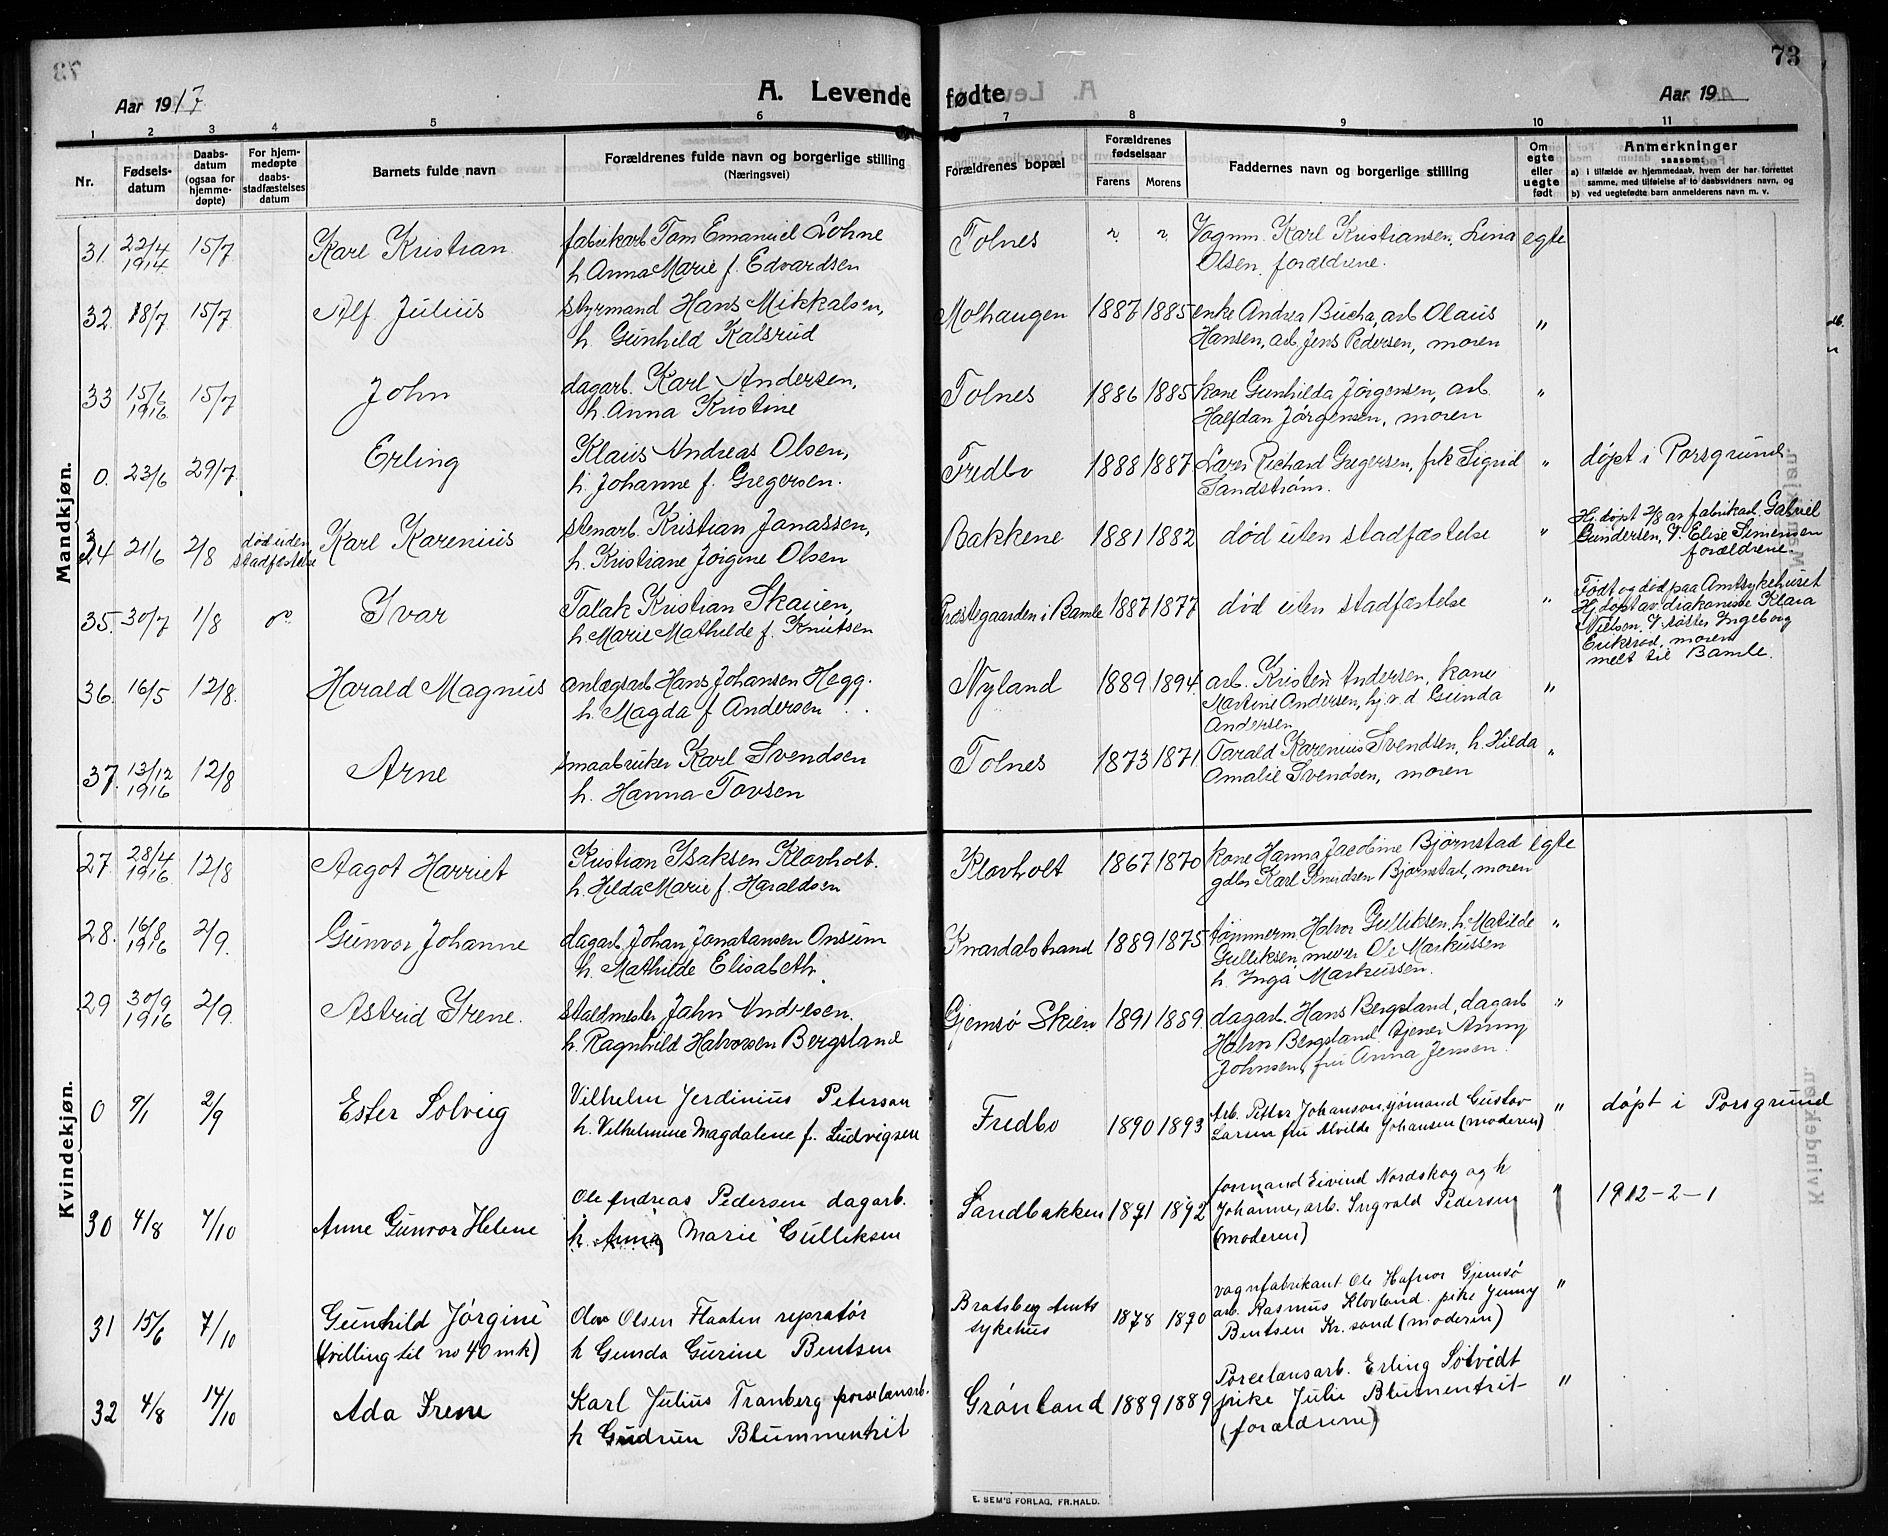 73
Aar 1917
A. Levende fødte
Aar 19
1 2 3 4 5 6 7 8 9 10 11
Nr.
Fødsels-
datum
Daabs-
datum
(ogsaa for
hjemme-
døpte)
For hjem-
medøpte
daabs-
stadfæstelses
datum
Barnets fulde navn
Forældrenes fulde navn og borgerlige stilling
(Næringsvei)
Forældrenes bopæl
Forældrenes
fødselsaar
Farens Morens
Faddernes navn og borgerlige stilling
Om
egte
eller
uegte
født
Anmerkninger
saasom:
a) i tilfælde av hjemmedaab, hvem der har forrettet
samme, med tilføielse af to daabsvidners navn, og
b) ved uegtefødte barn anmelderens navn m. v.
Mandkjøn.
31. 22/4 1914 15/7 Karl Kristian fabrikarb Tom Emanuel Lohne Tolnes " " Vognm. Karl Kristiansen, Lina egte
h. Anna Marie f. Edvardsen Olsen, forældrene.
32. 18/7 15/7 Alf Julius Styrmand Hans Mikkalsen, Molhaugen 1887 1885 enke Andrea Bucha, arb Olaus "
h. Gunhild Kalsrud Hansen, arb. Jens Pedersen, moren
33 15/6 1916 15/7 John dagarb. Karl Andersen, Tolnes 1886 1885 kone Gunhilda Jørgensen, arb. "
h. Anna Kristine Halfdan Jørgensen, moren
0. 23/6 29/7 Erling Klaus Andreas Olsen, Fredbo 1888 1887 Lars Richard Gregersen, frk Sigrid " døpt i Porsgrund
h. Johanne f. Gregersen. Sandstrøm.
34 21/6 2/8 død uden stadfæstelse Karl Karenius Stenarb. Kristian Janassen, Bakkene 1881 1882 død uten stadfæstelse " Hj.døpt 2/8 av fabrikarb. Gabriel
h. Kristiane Jørgine Olsen Gundersen, V. Elise Simensen
forældrene.
35. 30/7 1/8 do Ivar Tallak Kristian Skauen, Præstegaarden i Bamle 1887 1877 død uten stadfæstelse " Født og død paa Amtsykehuset
h. Marie Mathilde f. Knutsen Hj.døpt av diakonisse Klara
Nielsen. V. søster Ingeborg
Eriksrød, moren
melt til Bamle.
36. 16/5 12/8. Harald Magnus anlægsarb Hans Johansen Hegg. Nyland 1889 1894 arb. Kristen Andersen, kone "
h. Magda f Andersen Martine Andersen, hj.v.d Gunda
Andersen
37. 13/12 1916 12/8 Arne smaabruker Karl Svendsen Tolnes 1873 1871 Tarald Karenius Svendsen, h. Hilda "
h. Hanna Tovsen Amalie Svendsen, moren
Kvindekjøn.
27. 28/4 1916 12/8 Aagot Harriet Kristian Isaksen Klovholt. Klovholt 1867 1870 kone Hanna Jacobine Bjørnstad egte
h. Hilda Marie f. Haraldsen gdbr Karl Knudsen Bjørnstad, moren
28. 16/8 1916 2/9. Gunvor Johanne dagarb. Johan Jonatansen Onsum Knardalstrand 1889 1875 tømmerm. Halvor Gulliksen, h. Matilde "
h. Mathilde Elisabeth Gulliksen, murer Ole Markussen
h. Inga Markussen.
29 30/9 1916 2/9. Astrid Irene. Staldmester John Andresen. Gjemsø Skien 1891 1889. dagarb. Hans Bergsland, dagarb "
h. Ragnhild Halvorsen Bergsland Halvor Bergsland. tjener Anny
Johnsen, fru Anna Jensen.
0 9/1 2/9 Ester Solveig Vilhelm Jerdinius Peterson Fredbo 1890 1893 Arb. Petter Johanson, sjømand Gustav " døpt i Porsgrund
h. Vilhelmine Magdalene f. Ludvigsen Larsen fru Alvilde Johansen (moderen)
30 4/8 7/10 Anne Gunvor Helene Ole Andreas Pedersen dagarb. Sandbakken 1891 1892 formand Eivind Nordskog og h. " 1912-2-1
h. Anna Marie Gulliksen Johanne, arb. Ingvald Pedersen
(moderen)
31 15/6 7/10 Gunhild Jørgine Olav Olsen Flaaten repratør Bratsberg Amts sykehus 1878 1890 vognfabrikant Ole Hafnor Gjemsø "
(tvilling til no 40 mk) h Gunda Gurine Bentsen arb. Rasmus Klovland. pike Jenny
Bentsen Kr.sand (moderen)
32 4/8 14/10 Ada Irene Karl Julius Tranberg porselansarb. Grønland 1889 1889 Porcelansarb. Erling Solvedt "
h Gudrun Blummentrit pike Julie Blumentrit
(forældrene)
E. SEM'S FORLAG, FR.HALD.